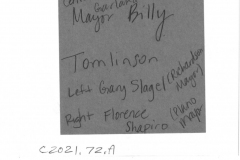 Garland
Mayor Billy
Tomlinson
Left Gary Slagel (Richardson
Mayor)
Right Florence
Shapiro (Plano
Mayor
C2021.72.A